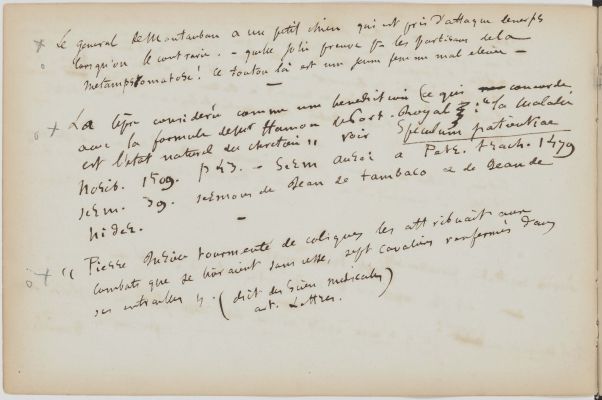 Le general de Montauban a un petit chien qui est pris d'attaque de nerfs
lorsqu'on le contrarie. - quelle jolie preuve pr les partisans de la
metampsomatose! ce toutou là est un jeune femme mal elevée -
La lèpre considerée comme une benediction (ce qui concorde
avec la formule de Mr Hamon de Port-Royal : "la maladie
est l'état naturel du chretien" voir Speculum patientiae
Norib. 1509. p 43. - Serm aussi a Petr. 1479
serm. 39. sermons de Jean de Tambaco & de Jean de
Nider.
" Pierre tourmenté de coliques les attribuait aux
combats que se livraient sans cesse, sept cavaliers renfermés dans
ses entrailles ". (dict des scien medicales
art. Lettres.)